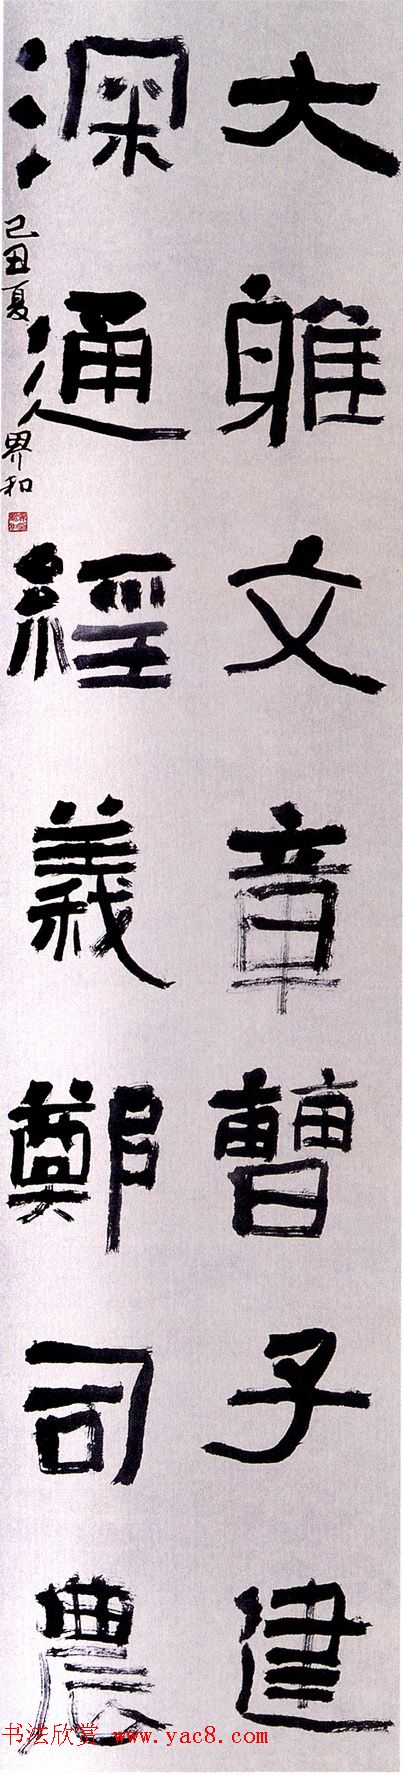 大雅文章曹子建
深通經義鄭司農
己丑夏
界和
书法欣赏 www.yac8.com